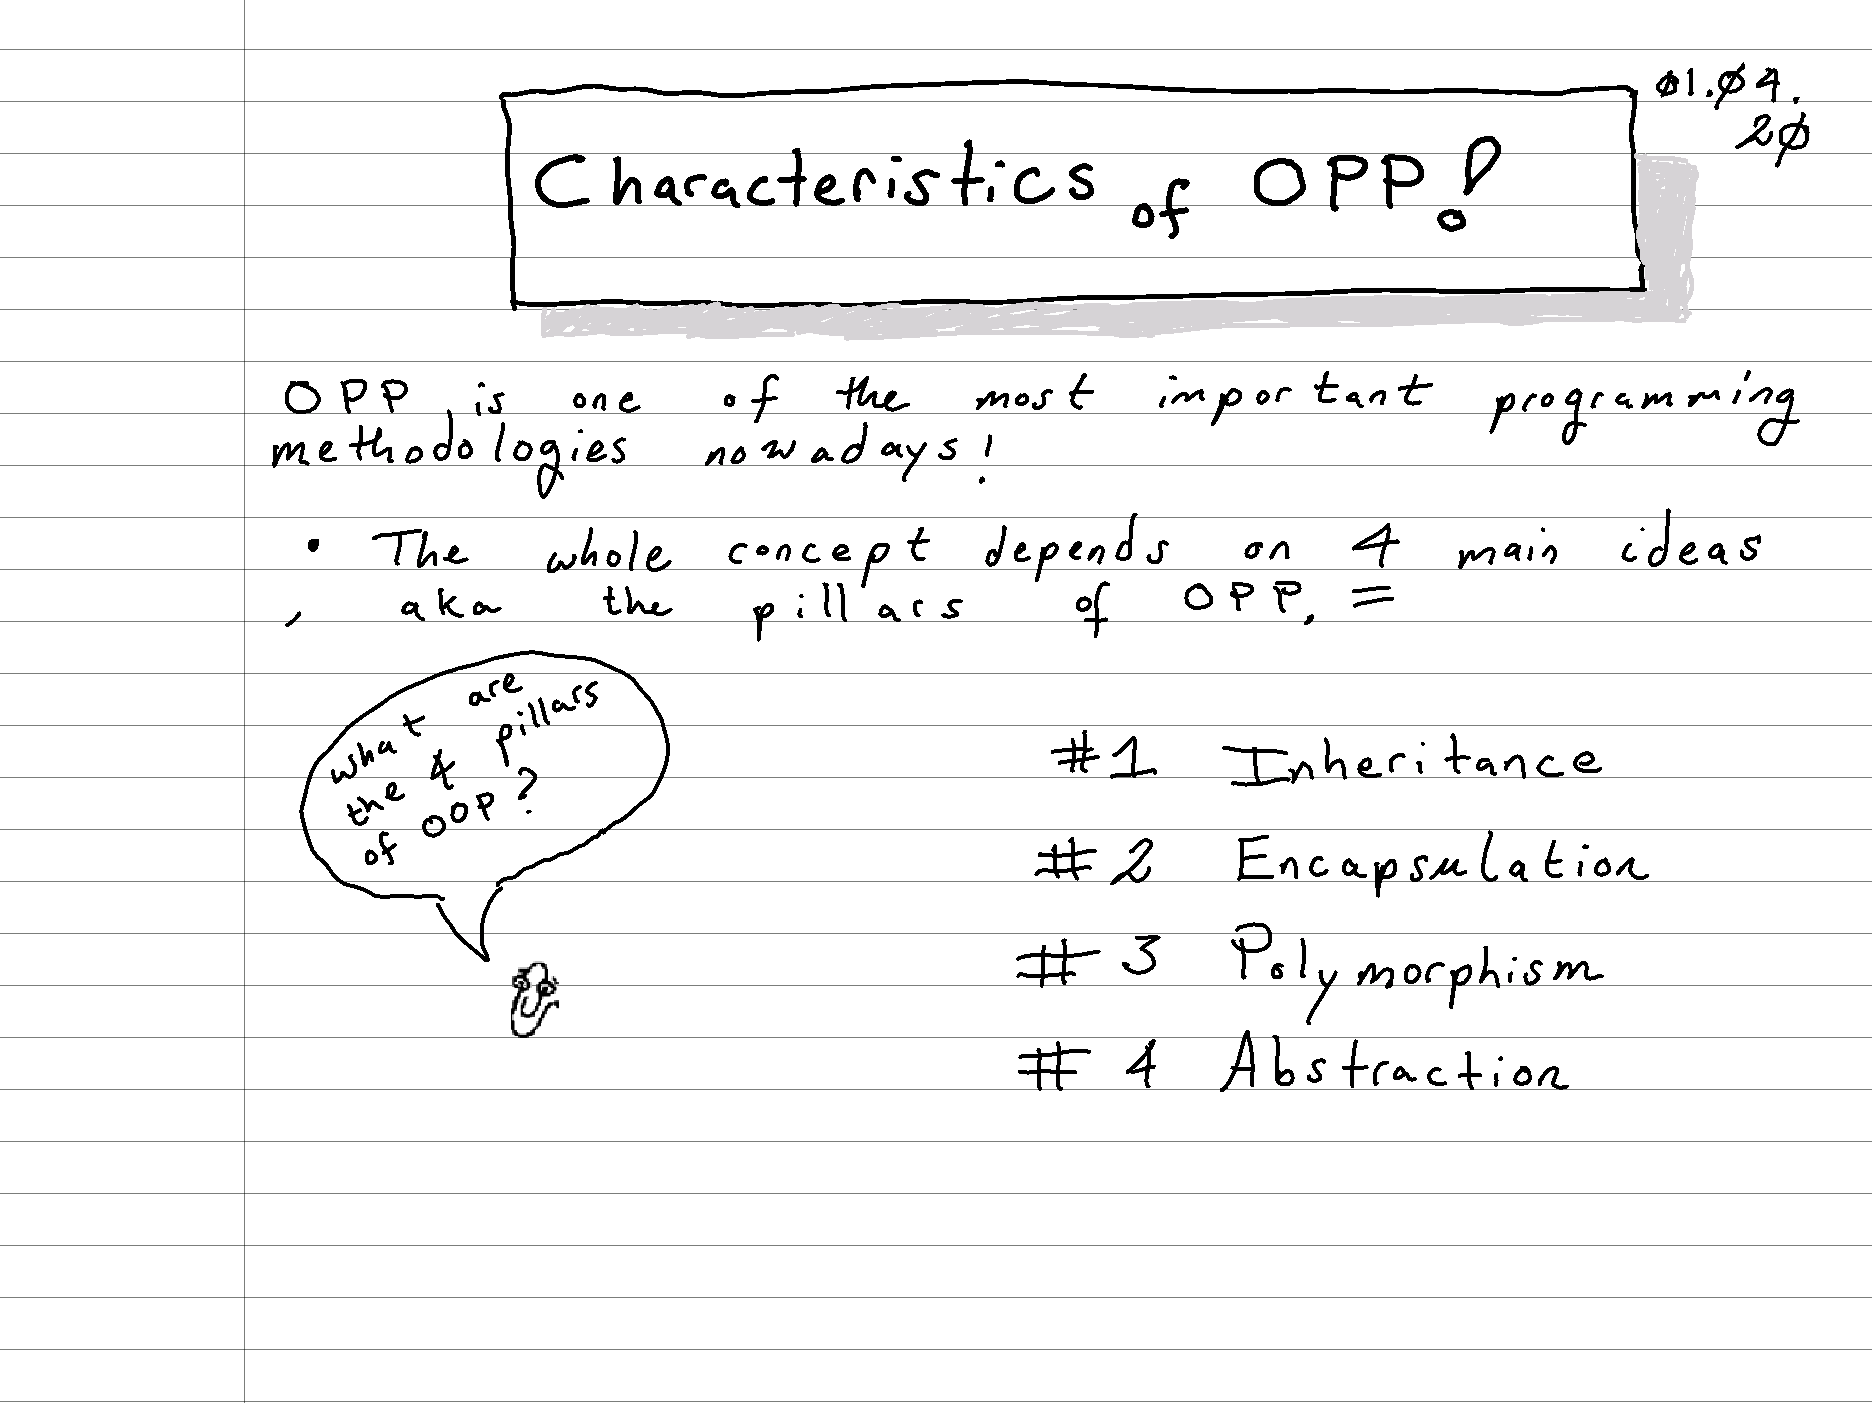 01.04.
20
Characteristics of OPP!
OPP is one of the most important programming
methodologies nowadays!
• The whole concept depends on 4 main ideas
, aka the pillars of OPP. =
what are
the 4 pillars
of OOP?
#1 Inheritance
#2 Encapsulation
#3 Polymorphism
#4 Abstraction